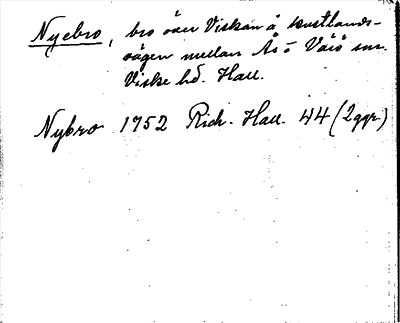 Nyebro, bro över Viskan å kustlands-
vägen mellan Ås- o Värö snr.
Viske hd. Hall.
Nybro 1752 Rich. Hall. 44 (2ggr)